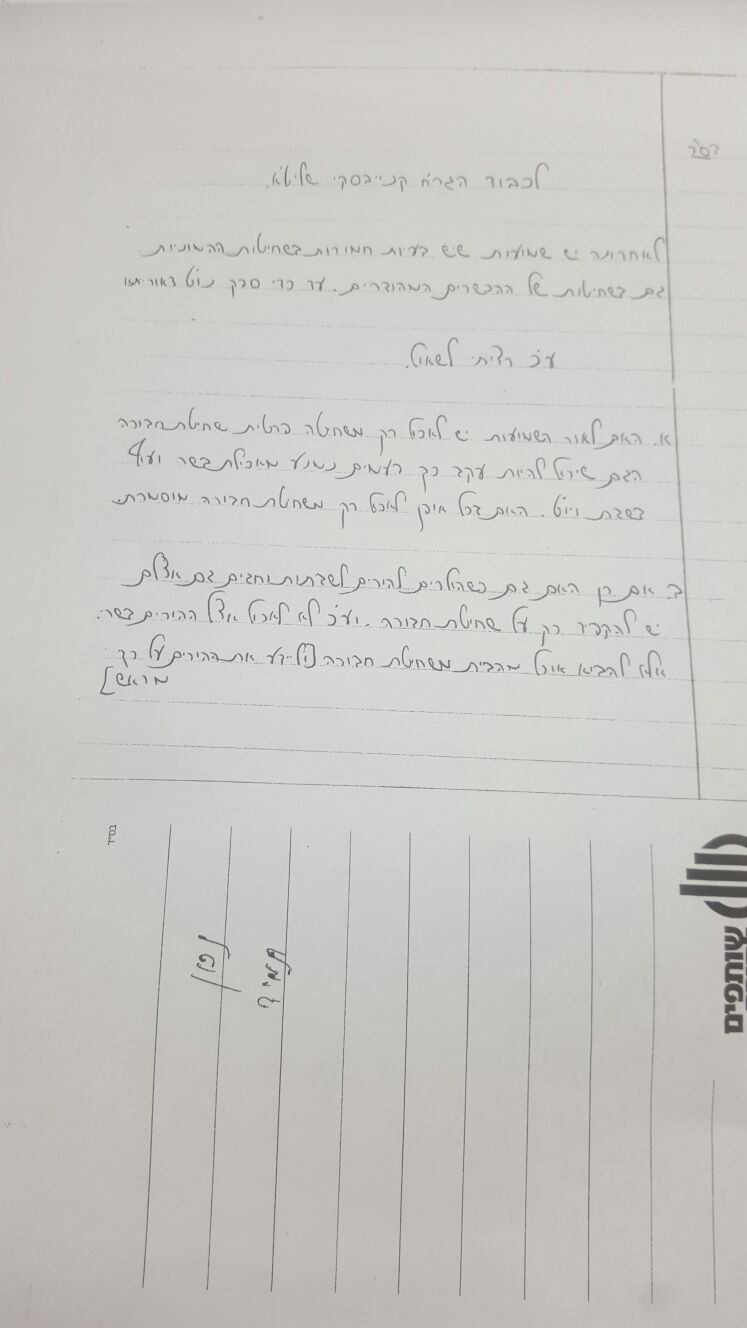 בס"ד
לכבוד הגר"ח קנייבסקי שליט"א.
לאחרונה יש שמועות שיש בעיות חמורות בשחיטות ההמוניות
גם בשחיטות של ההכשרים המהודרים. עד כדי ספק נו"ט דאוריתו
ע"כ רציתי לשאול.
א. האם לאור השמועות יש לאכול רק משחיטה פרטית שחיטת חבורה
הגם שיכול להיות עקב כך לעמים נמנע מאכילת בשר ועוף
בשבת ויו"ט. האם בכל אופן לאכול רק משחיטת חבורה מוסמכת.
ב. אם כן האם גם כשהולכים להורים לשבתות וחגים גם אצלם
יש להקפיד רק על שחיטת חבורה. וע"כ לא לאכול אצל ההורים בשר.
אלא להביא אוכל מהבית משחיטת חבורה [וליידע את ההורים על כך
מראש]
בס"ד
משותפים